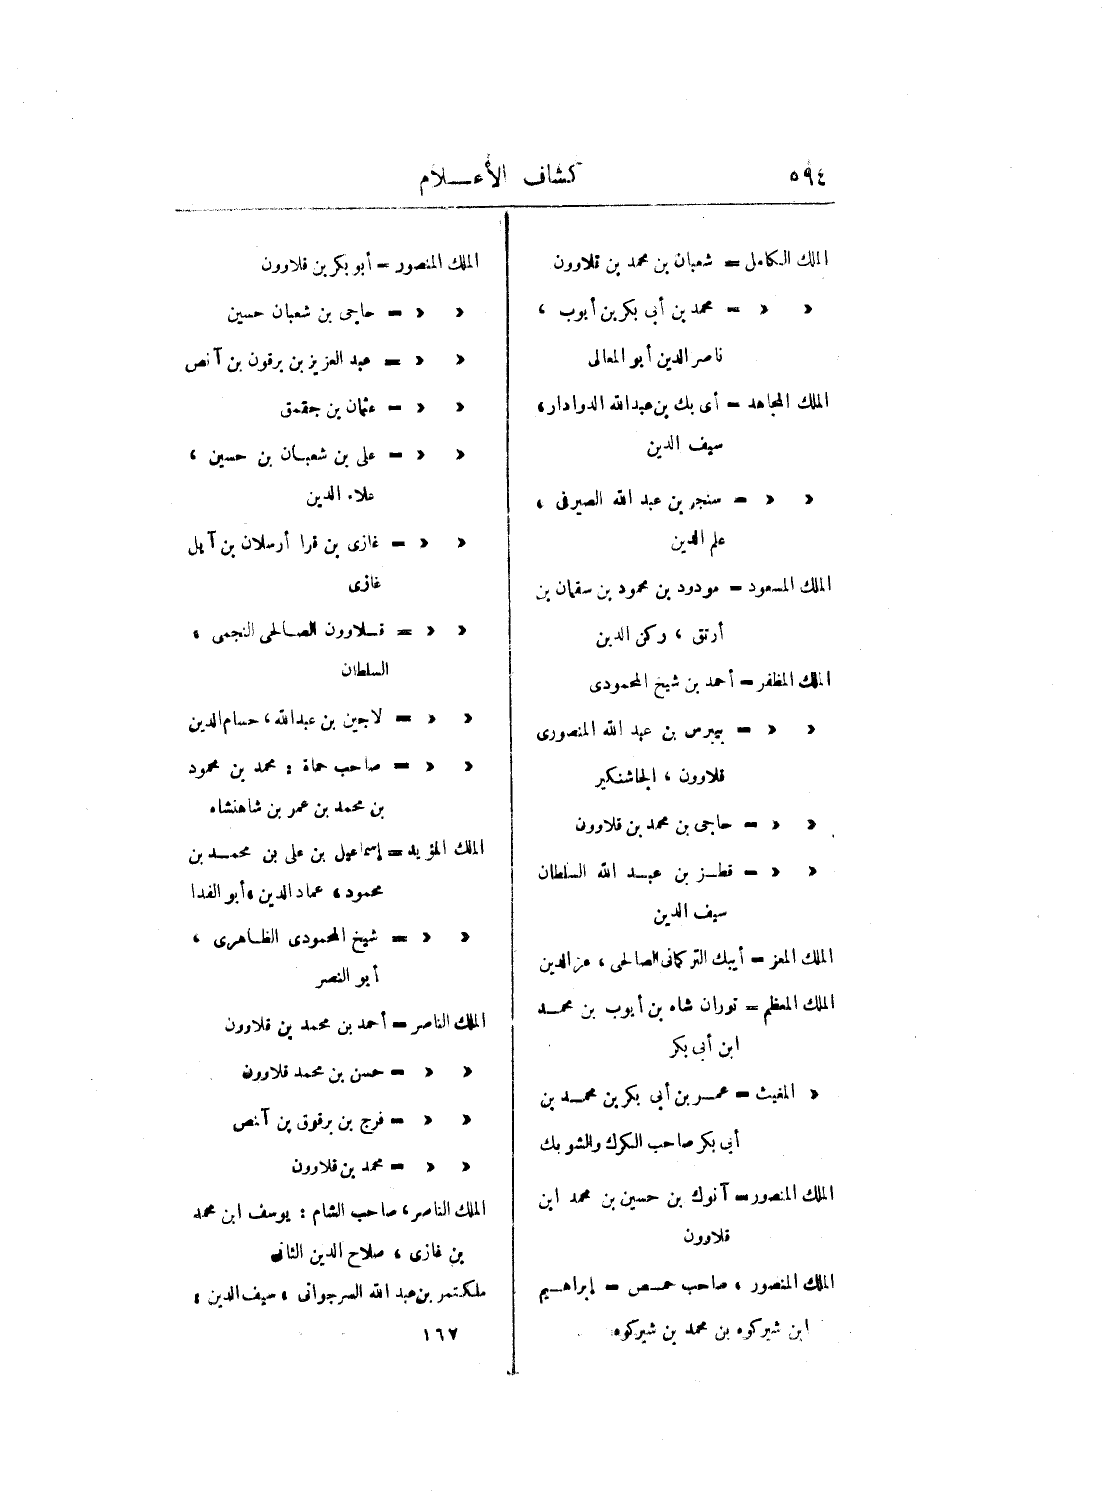 ٥٩٤
كشاف الأعـــلام
الملك الكامل = شعبان بن محمد بن قلاوون
« « = محمد بن أبى بكر بن أيوب ،
ناصر الدين أبو المعالى
الملك المجاهد = أى بك بن عبد الله الدوادار،
سيف الدين
« « = سنجر بن عبد الله الصيرفى ،
علم الدين
الملك المسعود = مودود بن محمود بن سقمان بن
أرتق ، ركن الدين
الملك المظفر = أحمد بن شيخ المحمودى
« « = بيبرس بن عبد الله المنصورى
قلاوون ، الجاشنكير
« « = حاجى بن محمد بن قلاوون
« « = قطـز بن عبـد الله السلطان
سيف الدين
الملك المعز = أيبك التركمانى الصالحى ، عز الدين
الملك المعظم = توران شاه بن أيوب بن محمـد
ابن أبى بكر
« المغيث = عمـر بن أبى بكر بن محمـد بن
أبى بكر صاحب الكرك والشوبك
الملك المنصور = آنوك بن حسين بن محمد ابن
قلاوون
الملك المنصور ، صاحب حمـص = إبراهـيم
ابن شيركوه بن محمد بن شيركوه
الملك المنصور = أبو بكر بن قلاوون
« « = حاجى بن شعبان حسين
« « = عبد العزيز بن برقون بن آنص
« « = عثمان بن جقمق
« « = على بن شعبـان بن حسين ،
علاء الدين
« « = غازى بن قرا أرسلان بن آيل
غازى
« « = قـلاوون الصـالحى النجمى ،
السلطان
« « = لاجين بن عبد الله ، حسام الدين
« « = صاحب حماة : محمد بن محمود
بن محمد بن عمر بن شاهنشاه
الملك المؤيد = إسماعيل بن على بن محمـد بن
محمود ، عماد الدين ، أبو الفدا
« « = شيخ المحمودى الظـاهرى ،
أبو النصر
الملك الناصر = أحمد بن محمد بن قلاوون
« « = حسن بن محمد قلاوون
« « = فرج بن برقوق بن آنص
« « = محمد بن قلاوون
الملك الناصر، صاحب الشام : يوسف ابن محمد
بن غازى ، صلاح الدين الثانى
ملكتمر بن عبد الله السرجوانى ، سيف الدين :
١٦٧